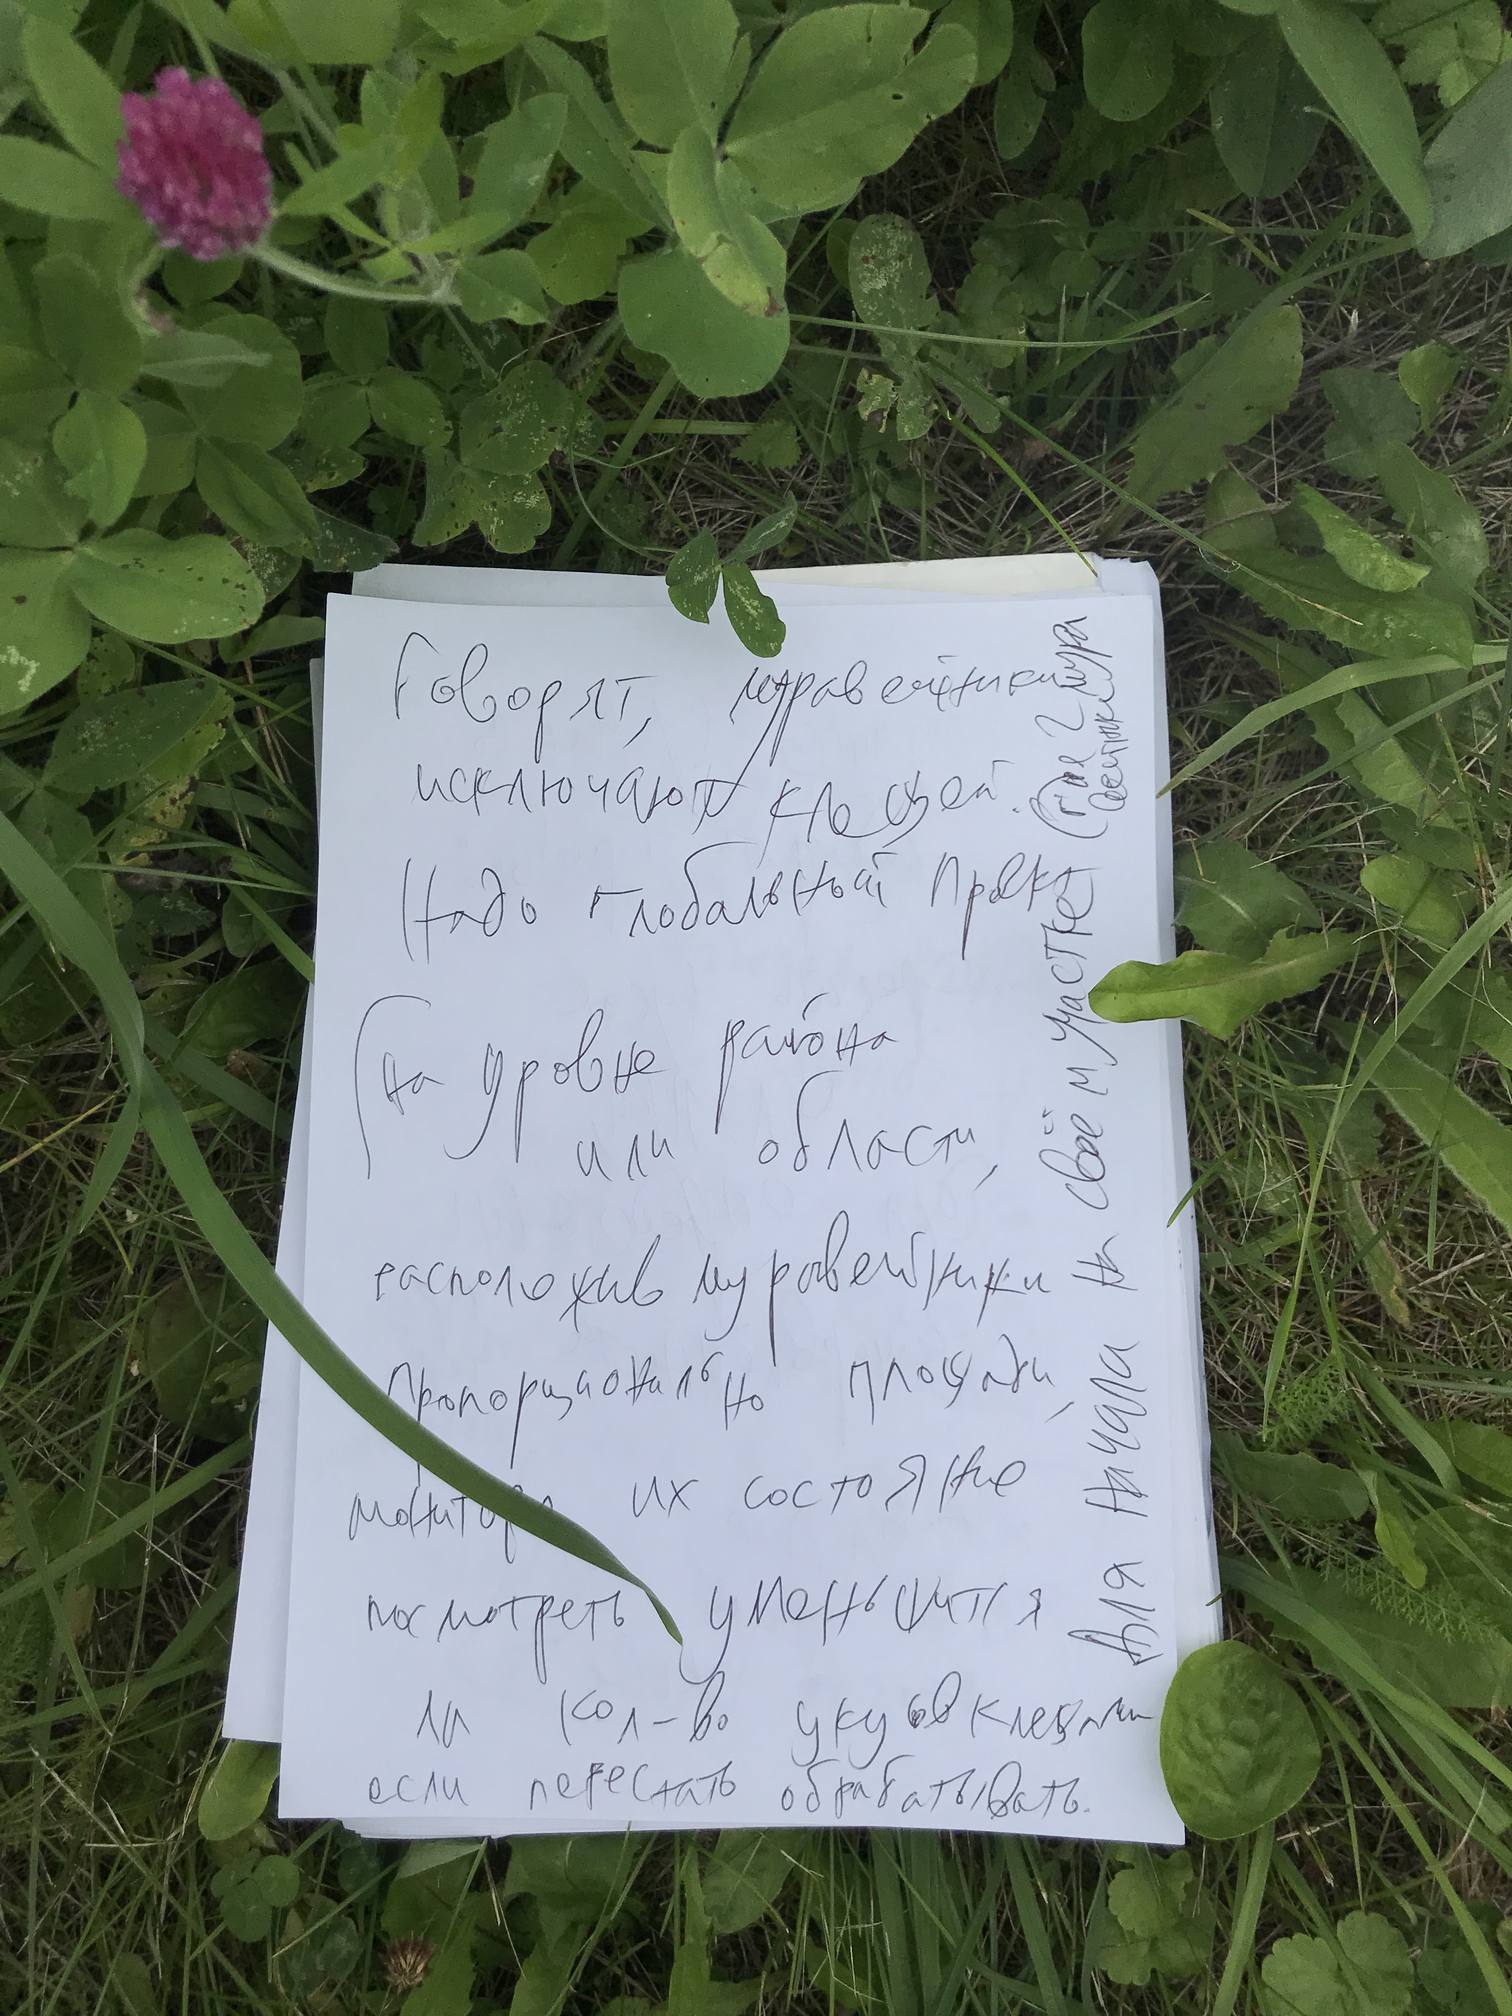 Говорят, муравейники
исключают клещей.
Надо глобальный проект
(на уровне района
или области,
расположив муравейники
пропорционально площади,
их состояние
посмотреть уменьшится
ли кол-во укусов клещами
если перестать обрабатывать.
Для начала на своём участке (где 2 мура
вейника